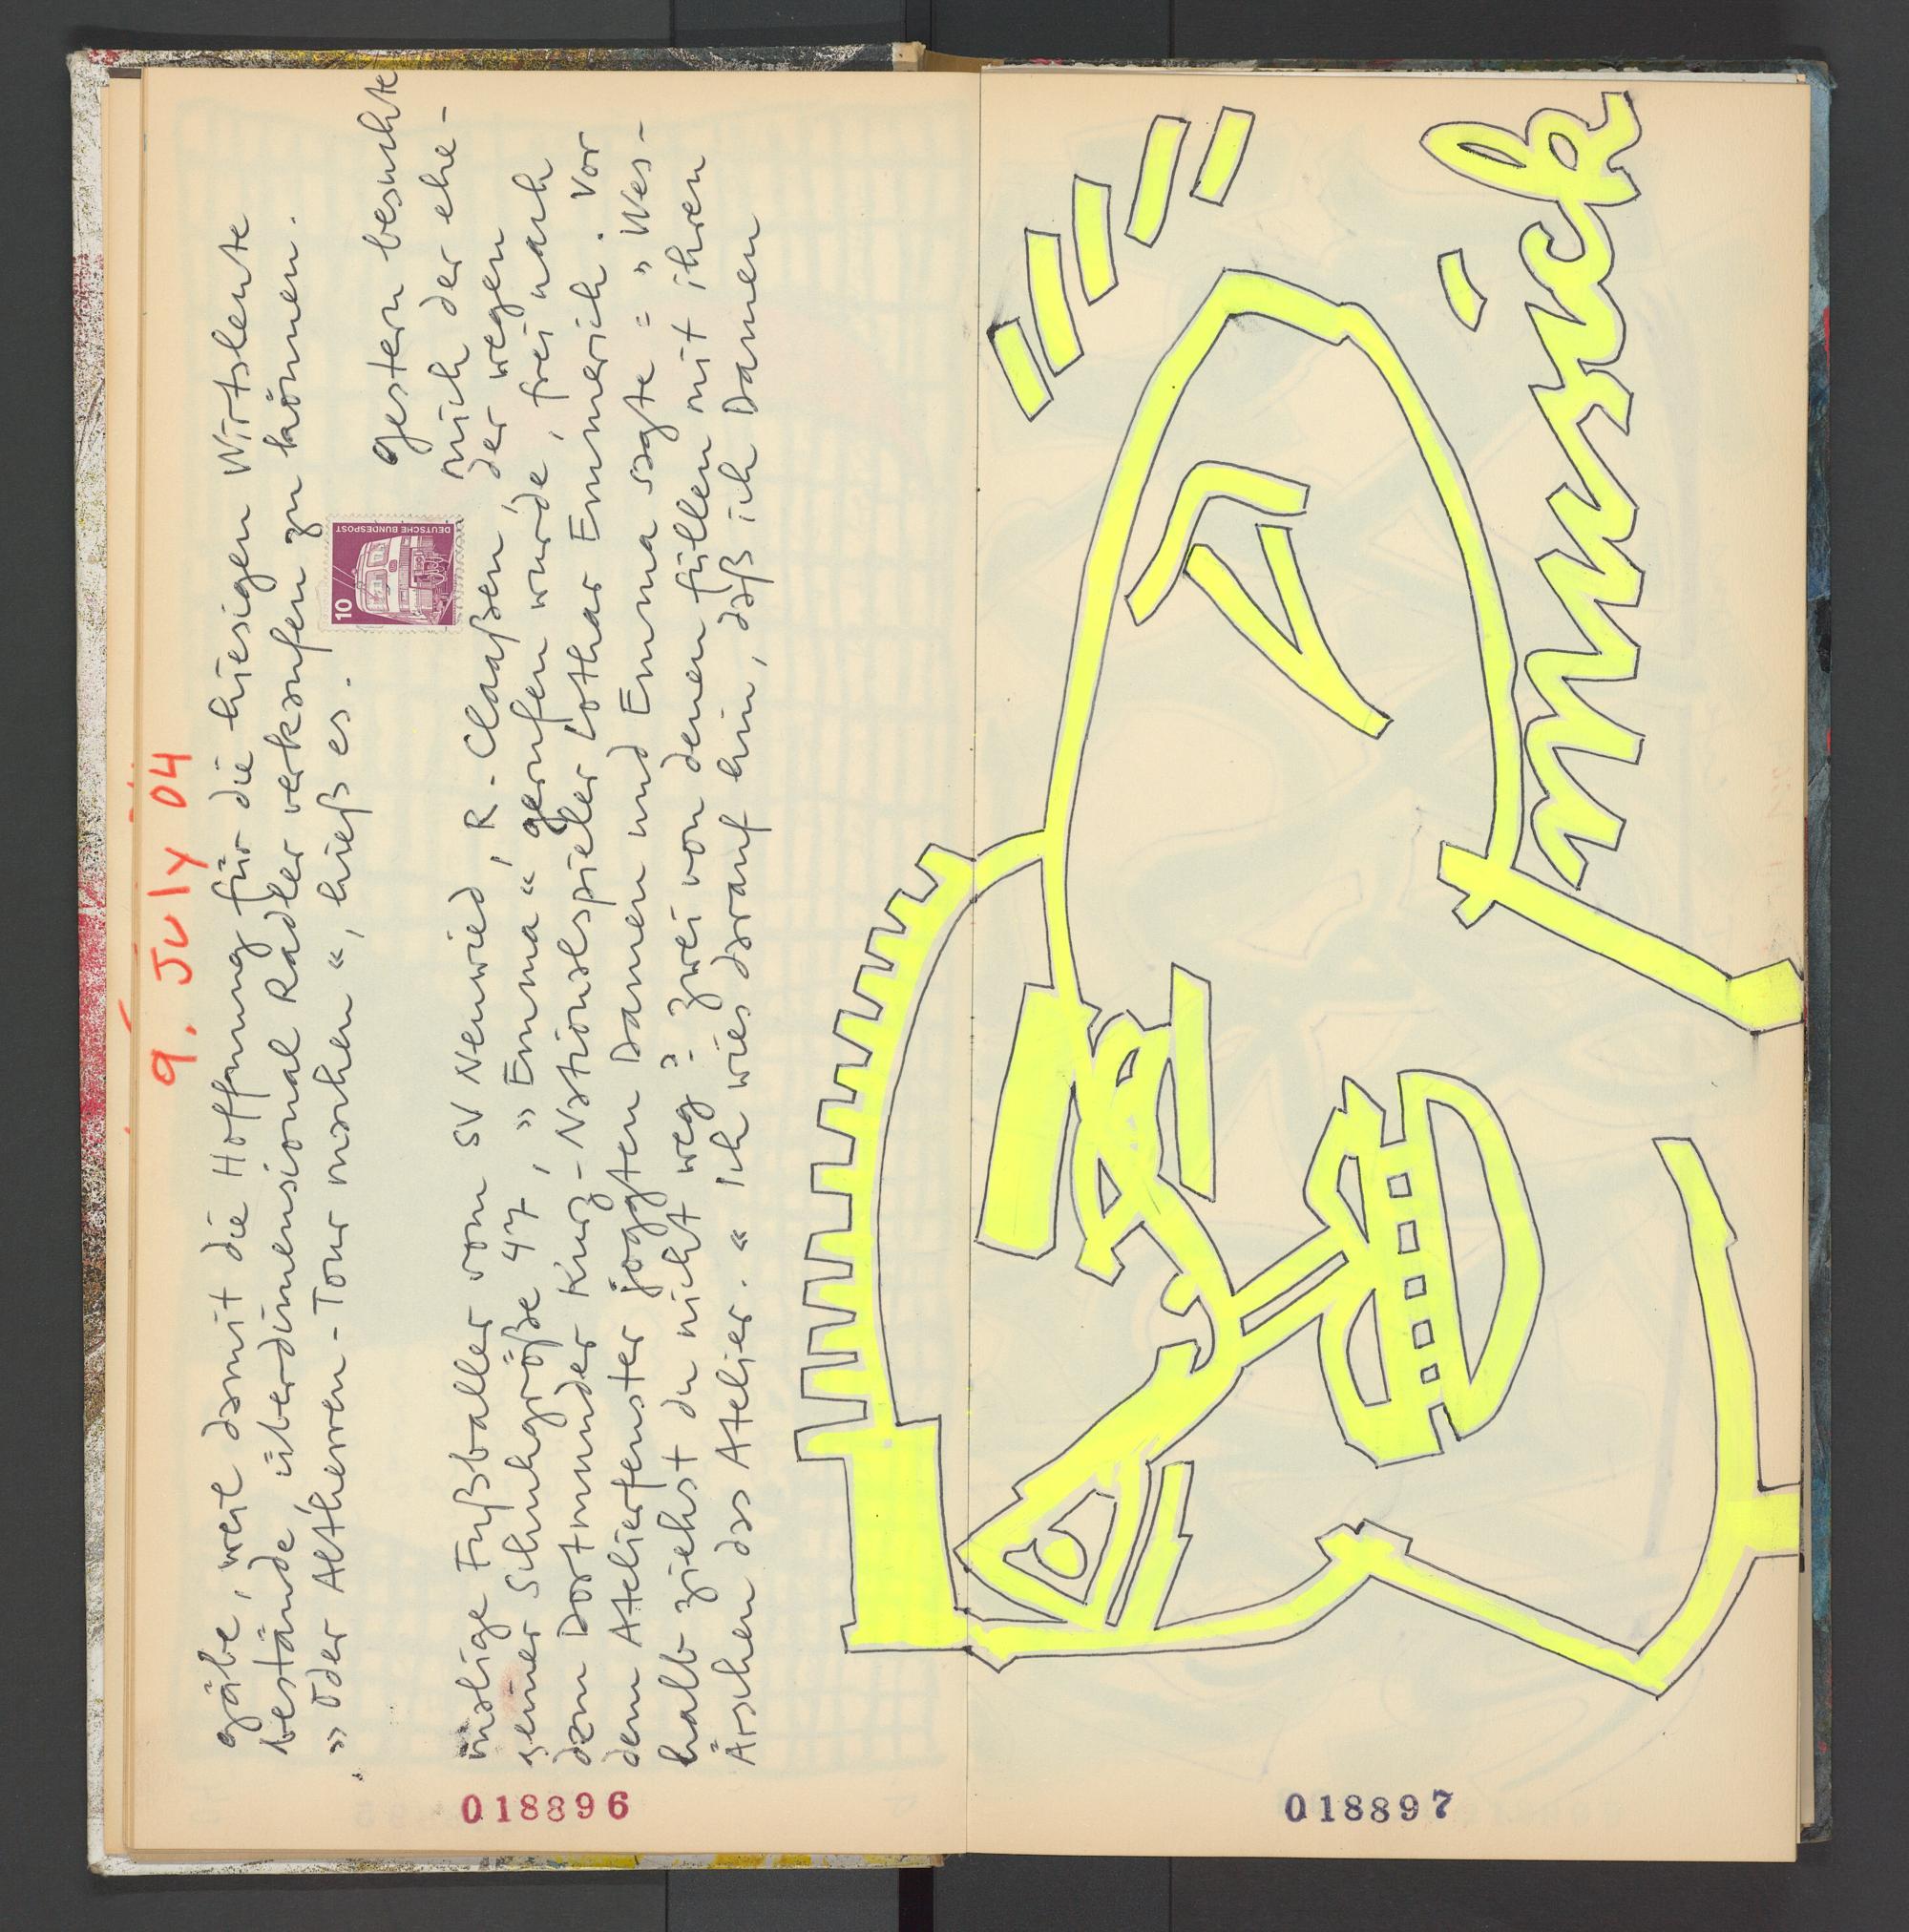 9. July 04
gäbe, weil damit die Hoffnung für die hiesigen Wirtsleute
bestände, überdimensional Radler verkaufen zu können.
„Oder Altherren-Tour machen“, hieß es.
10
DEUTSCHE BUNDESPOST
Gestern besuchte
mich der ehe-
malige Fußballer vom SV Neuwied, R. Claaßen, der wegen
seiner Schuhgröße 47, „Emma“ gerufen wurde, frei nach
dem Dortmunder Kurz-Nationalspieler Lothar Emmerich. Vor
dem Atelierfenster joggten Damen und Emma sagte: „Wes-
halb ziehst du nicht weg? Zwei von denen füllen mit ihren
Ärschen das Atelier.“ Ich wies darauf hin, daß ich Damen
018896
musick
018897